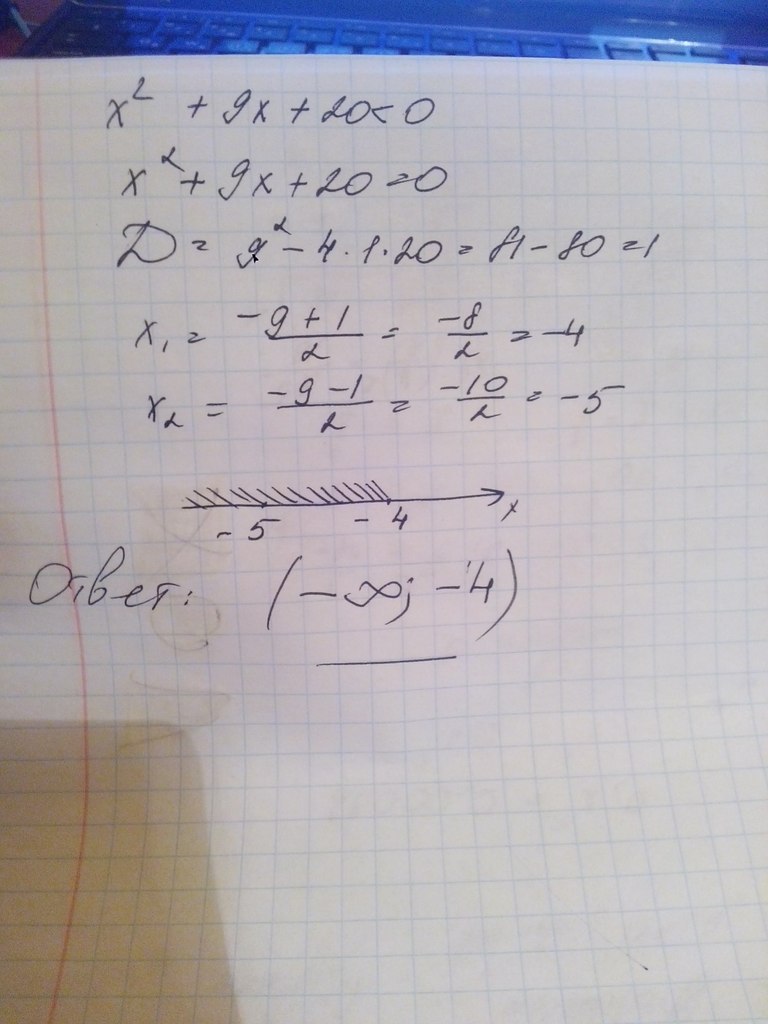 x² + 9x + 20 < 0
x² + 9x + 20 = 0
D = 9² - 4 · 1 · 20 = 81 - 80 = 1
x₁ = (-9 + 1)/2 = -8/2 = -4
x₂ = (-9 - 1)/2 = -10/2 = -5
-5 -4 x
Ответ: (-∞; -4)